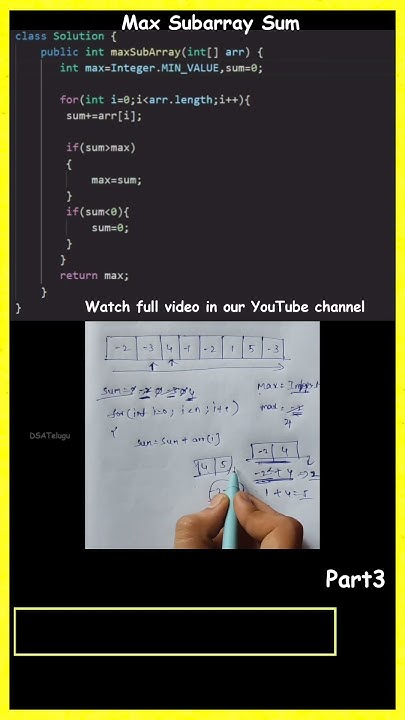 Max Subarray Sum
class Solution {
public int maxSubArray(int[] arr) {
int max=Integer.MIN_VALUE,sum=0;
for(int i=0;i<arr.length;i++){
sum+=arr[i];
if(sum>max)
{
max=sum;
}
if(sum<0){
sum=0;
}
}
return max;
}
}
Watch full video in our YouTube channel
-2 -3 4 -1 -2 1 5 -3
Sum=
Max =
for(int i=0; i<n; i++)
max=
{
Sum = Sum + arr[i]
DSATelugu
-2 4
4 5
-2 + 4
1 + 4 = 5
Part3